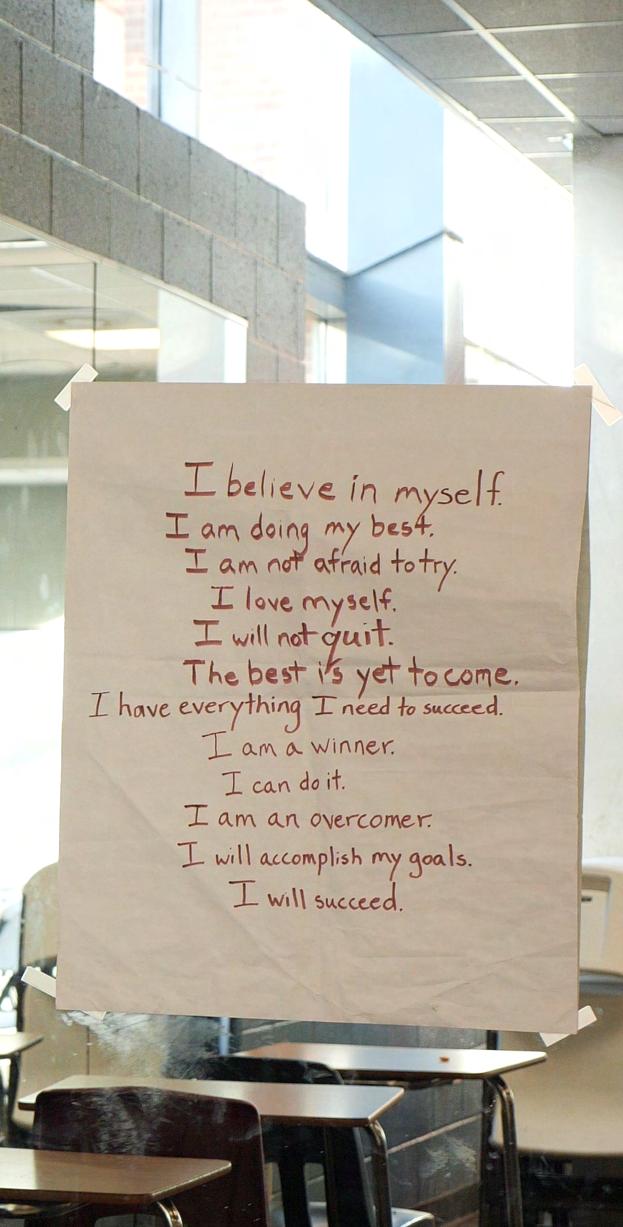 I believe in myself.
I am doing my best.
I am not afraid to try.
I love myself.
I will not quit.
The best is yet to come.
I have everything I need to succeed.
I am a winner.
I can do it.
I am an overcomer.
I will accomplish my goals.
I will succeed.